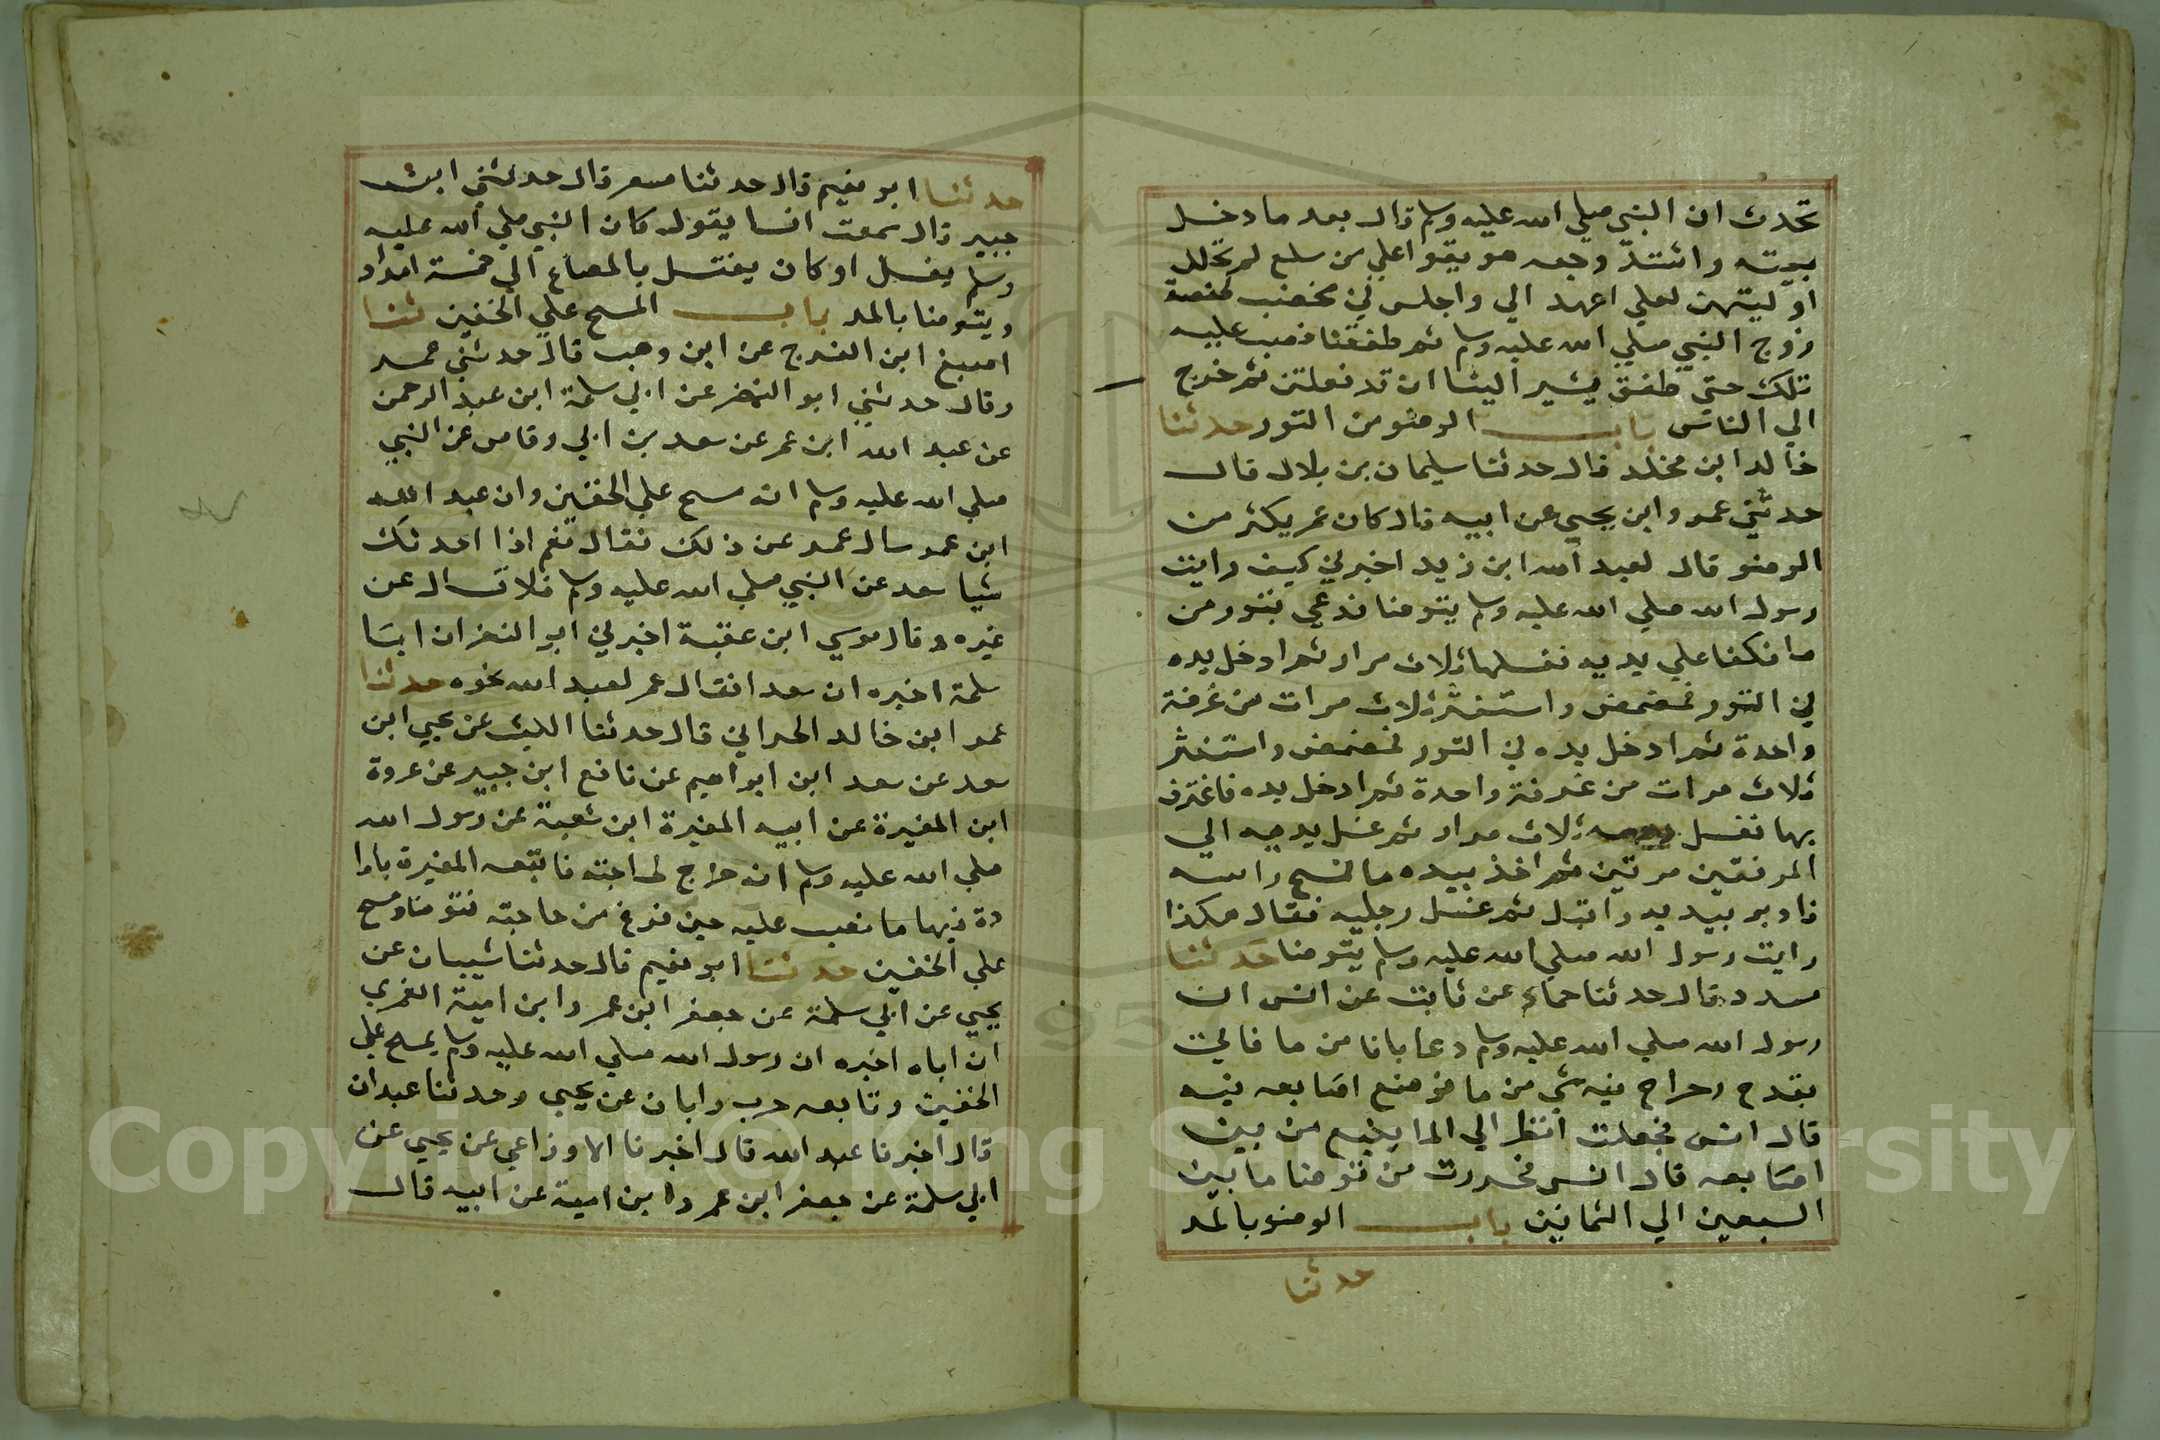 تحدث ان النبي صلي الله عليه وسلم قال بعد ما دخل
بيته واشتد وجعه هريقوا علي من سبع لم تحلل
او ليتهن لعلي اعهد الي واجلس في مخضب لحفصة
زوج النبي صلي الله عليه وسلم ثم طفقنا نصب عليه
تلك حتي طفق يشير الينا ان قد فعلتن ثم خرج
الي الناس باب الوضو من التور حدثنا
خالد ابن مخلد قال حدثنا سليمان بن بلال قال
حدثني عمرو ابن يحيي عن ابيه قال كان عمر يكثر من
الوضو قال لعبد الله ابن زيد اخبرني كيف رايت
رسول الله صلي الله عليه وسلم يتوضا فدعي بتور من
ما فكفا علي يديه فغسلها ثلاث مرار ثم ادخل يده
في التور فمضمض واستنثر ثلاث مرات من غرفة
واحدة ثم ادخل يده في التور فمضمض واستنثر
ثلاث مرات من غرفة واحدة ثم ادخل يده فاغترف
بها فغسل وجهه ثلاث مرار ثم غسل يديه الي
المرفقين مرتين ثم اخذ بيده ما فمسح راسه
فادبر بيديه واقبل ثم غسل رجليه فقال هكذا
رايت رسول الله صلي الله عليه وسلم يتوضا حدثنا
مسدد قال حدثنا حماد عن ثابت عن انس ان
رسول الله صلي الله عليه وسلم دعا بانا من ما فاتي
بقدح رحراح فيه شي من ما فوضع اصابعه فيه
قال انس فجعلت انظر الي الما ينبع من بين
اصابعه قال انس فحزرت من توضا ما بين
السبعين الي الثمانين باب الوضو بالمد
حدثنا
حدثنا ابو نعيم قال حدثنا مسعر قال حدثني ابن
جبير قال سمعت انسا يقول كان النبي صلي الله عليه
وسلم يغسل او كان يغتسل بالصاع الي خمسة امداد
ويتوضا بالمد باب المسح علي الخفين ثنا
اصبغ ابن الفرج عن ابن وهب قال حدثني عمر
وقال حدثني ابو النضر عن ابي سلمة ابن عبد الرحمن
عن عبد الله ابن عمر عن سعد بن ابي وقاص عن النبي
صلي الله عليه وسلم انه مسح علي الخفين وان عبد الله
ابن عمر سال عمر عن ذلك فقال نعم اذا احدثك
شيا سعد عن النبي صلي الله عليه وسلم فلا تسال عن
غيره وقال موسي ابن عقبة اخبرني ابو النضر ان ابا
سلمة اخبره ان سعدا فقال عمر لعبد الله نحوه حدثنا
عمرو ابن خالد الحراني قال حدثنا الليث عن يحيي ابن
سعد عن سعد ابن ابراهيم عن نافع ابن جبير عن عروة
ابن المغيرة عن ابيه المغيرة ابن شعبة عن رسول الله
صلي الله عليه وسلم انه خراج لحاجته فاتبعه المغيرة بادا
دة فيها ما فصب عليه حين فرغ من حاجته فتوضا ومسح
علي الخفين حدثنا ابو نعيم قال حدثنا شيبان عن
يحيي عن ابي سلمة عن جعفر ابن عمر وابن امية الضمري
ان اباه اخبره ان رسول الله صلي الله عليه وسلم يمسح علي
الخفين وتابعه حرب وابان عن يحيي وحدثنا عبدان
قال اخبرنا عبد الله قال اخبرنا الاوزاعي عن يحيي عن
ابي سلمة عن جعفر ابن عمر وابن امية عن ابيه قال
Copyright © King Saud University